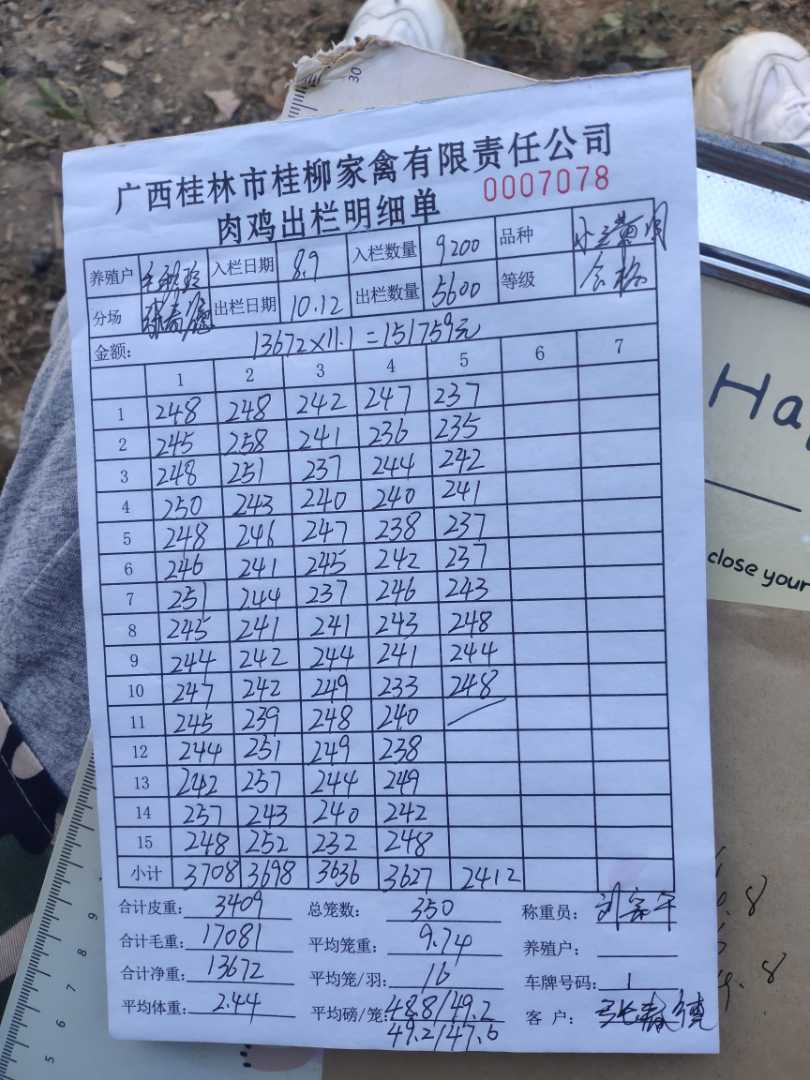 广西桂林市桂柳家禽有限责任公司
肉鸡出栏明细单 0007078
养殖户 入栏日期 8.9 入栏数量 9200 品种
分场 出栏日期 10.12 出栏数量 5600 等级 合格
金额: 13672×11.1=151759元
1 2 3 4 5 6 7
1 248 248 242 247 237
2 245 258 241 236 235
3 248 251 237 244 242
4 250 243 240 240 241
5 248 246 247 238 237
6 246 241 245 242 237
7 251 244 237 246 243
8 245 241 241 243 248
9 244 242 244 241 244
10 247 242 249 233 248
11 245 239 248 240
12 244 251 249 238
13 242 257 244 249
14 257 243 240 242
15 248 252 232 248
小计 3708 3698 3636 3627 2412
合计皮重: 3409 总笼数: 350 称重员:
合计毛重: 17081 平均笼重: 9.74 养殖户:
合计净重: 13672 平均笼/羽: 16 车牌号码: 1
平均体重: 2.44 平均磅/笼: 48.8/49.2 客户:
49.2/47.6
30
Ha
close your
9
8
7
6
5
.8
.8